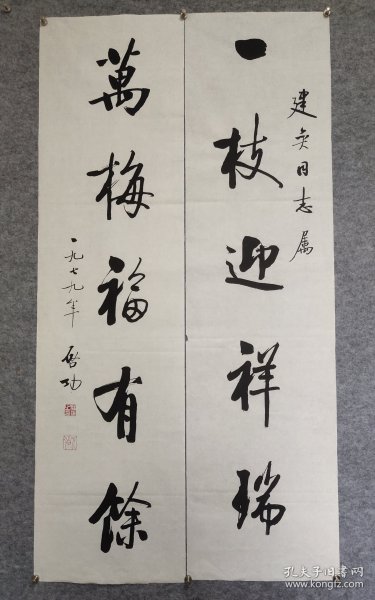 建英同志属
一枝迎祥瑞
萬梅福有餘
一九七九年 啓功
孔夫子旧书网
www.kongfz.com